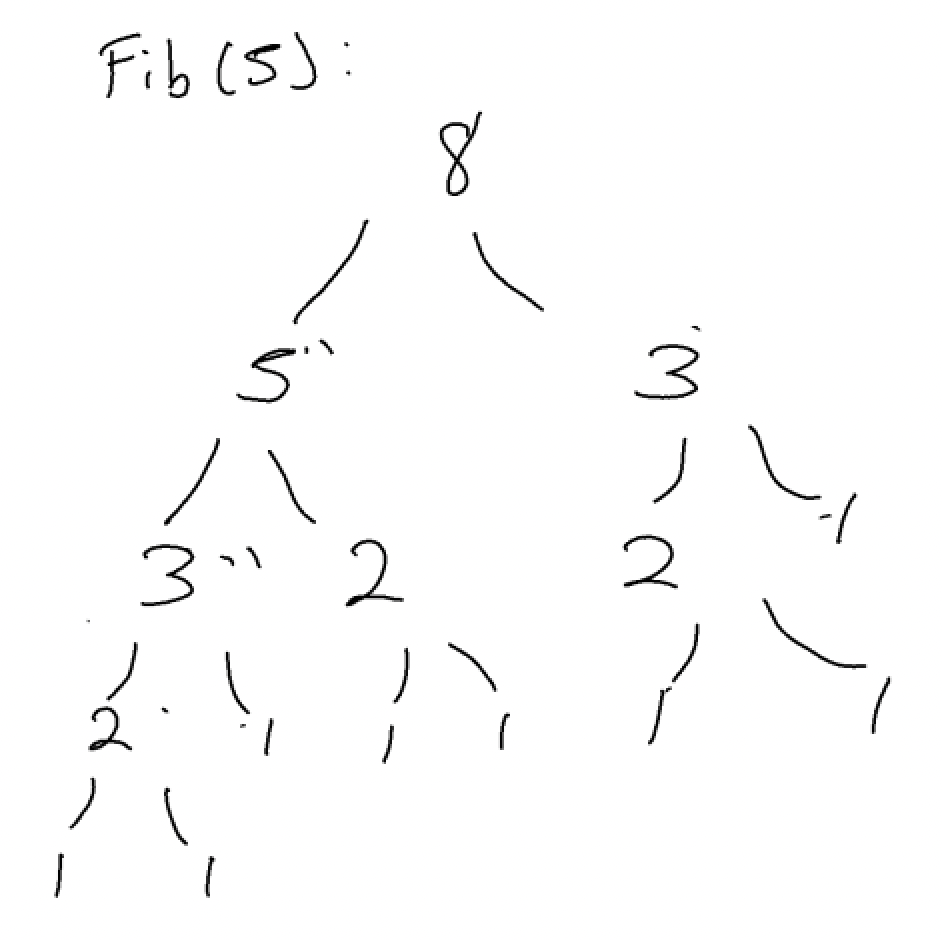 Fib(5):
8
5 3
3 2 2 1
2 1 1 1 1 1
1 1